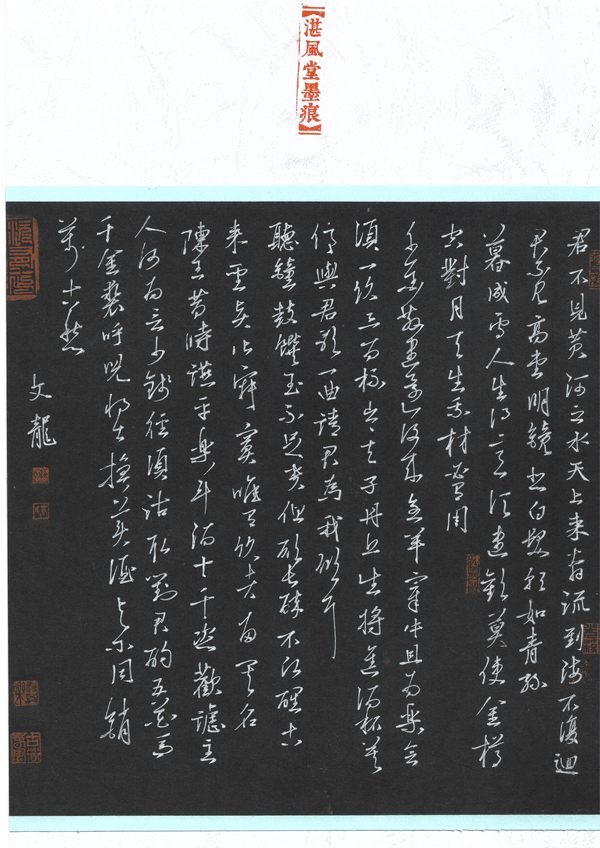 【湛風堂墨痕】
君不見黃河之水天上来奔流到海不復迴
君不見高堂明鏡悲白髮朝如青絲
暮成雪人生得意須盡歡莫使金樽
空對月天生我材必有用
千金散盡還復来烹羊宰牛且為樂會
須一飲三百杯岑夫子丹丘生將進酒杯莫
停與君歌一曲請君為我傾耳
聽鐘鼓饌玉不足貴但願長醉不復醒古
来聖賢皆寂寞唯有飲者留其名
陳王昔時讌平樂斗酒十千恣歡謔主
人何為言少錢徑須沽取對君酌五花馬
千金裘呼兒將出換美酒與爾同銷
萬古愁
文龍